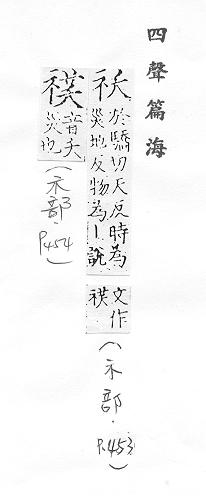 四聲篇海
祅
於驕切天反時為
災地反物為丨說
文作
䄏
(示部.P.453)
䄏
音夭
災也
(示部.P454)